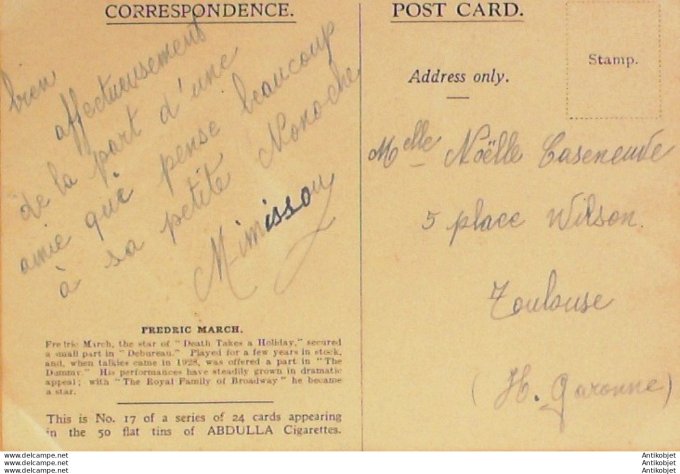 CORRESPONDENCE.
bien
affectueusement
de la part d'une
amie qui pense beaucoup
à sa petite Nonoche
Mimissou
FREDRIC MARCH.
Fredric March, the star of "Death Takes a Holiday," secured
a small part in "Debureau." Played for a few years in stock,
and, when talkies came in 1928, was offered a part in "The
Dummy." His performances have steadily grown in dramatic
appeal; with "The Royal Family of Broadway" he became
a star.
This is No. 17 of a series of 24 cards appearing
in the 50 flat tins of ABDULLA Cigarettes.
POST CARD.
Stamp.
Address only.
Melle Noëlle Caseneuve
5 place Wilson.
Toulouse
(H. Garonne)
www.akibokijet.com